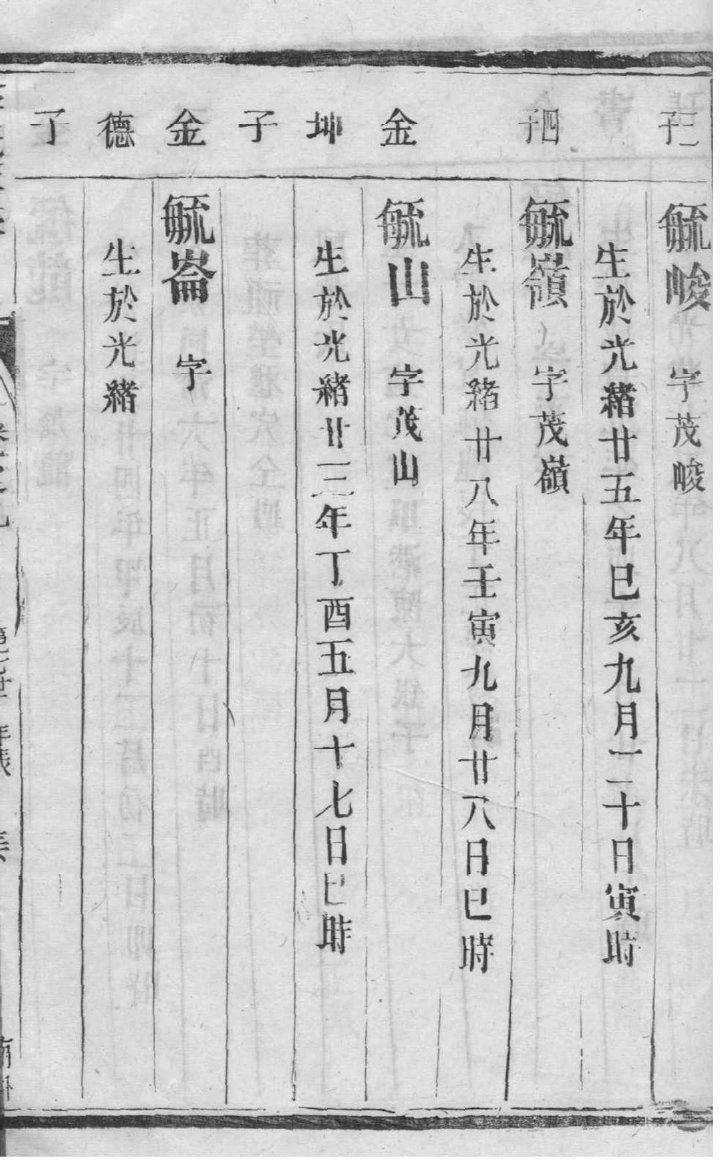 三子
毓峻 字茂峻
生於光緒廿五年巳亥九月二十日寅時
四子
毓嶺 字茂嶺
生於光緒廿八年壬寅九月廿八日巳時
金
毓山 字茂山
坤
生於光緒廿三年丁酉五月十七日巳時
子
金
毓崙 字
德
生於光緒
子